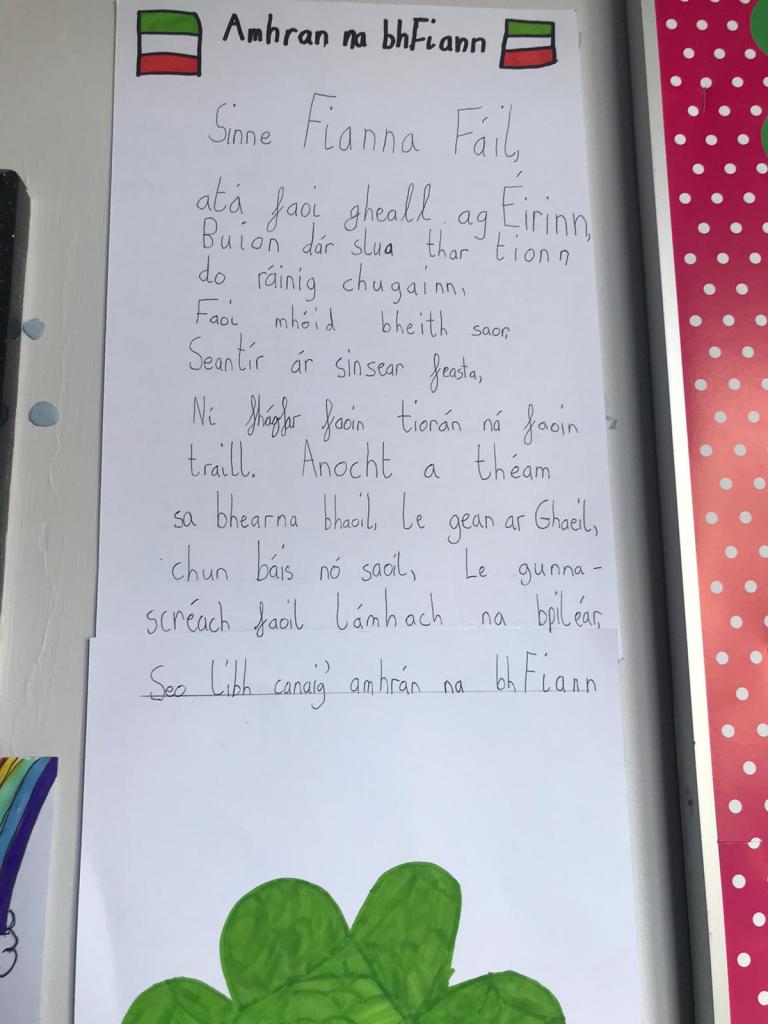 Amhran na bhFiann
Sinne Fianna Fáil,
atá faoi gheall ag Éirinn,
Buion dár slua thar tionn
do ráinig chugainn,
Faoi mhóid bheith saor,
Seantír ár sinsear feasta,
Ní fhágfar faoin tiorán ná faoin
traill. Anocht a théam
sa bhearna bhaoil, le gean ar Ghaeil,
chun báis nó saoil, Le gunna-
scréach faoil lámhach na bpiléar,
Seo líbh canaig' amhrán na bhFiann